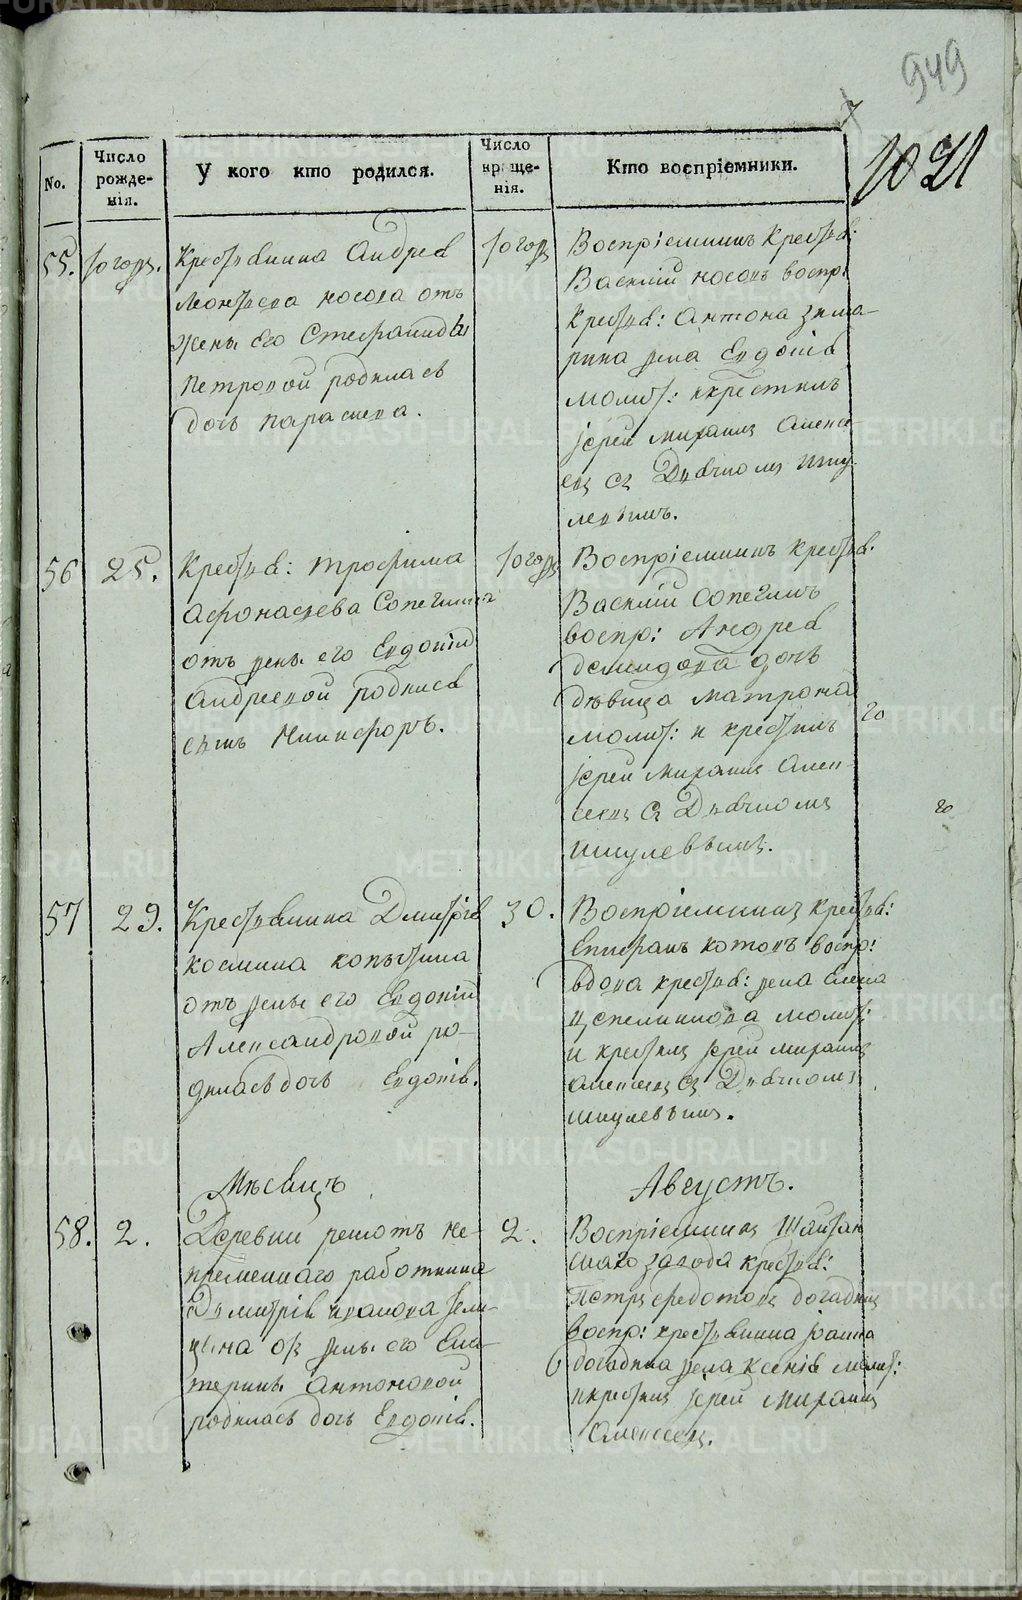 949
1021
No.
Число рожденія.
У кого кто родился.
Число крещенія.
Кто воспріемники.
55.
тогож.
Крестьянина Андрея
Леонтьева Носова отъ
жены его Степаниды
Петровой родилась
дочь Параскева.
тогож
Воспріемникъ крестья:
Василій Носовъ воспр:
крестья: Антона Зима-
рина жена Евдокія
молит: и крестилъ
іерей Михаилъ Алексе-
евъ съ Дьячкомъ Шту-
левымъ.
56
25.
Крестья: Трофима
Афонасьева Сопегина
отъ жены его Евдокіи
Андреевой родился
сынъ Никифоръ.
тогож
Воспріемникъ крестья.
Василій Сопегинъ
воспр: Андрея
Демидова дочь
дѣвица Матрона
молит: и крестилъ
іерей Михаилъ Алек-
сеевъ съ Дьячкомъ
Шкулевымъ.
57
29.
Крестьянина Дмитрія
Космина Копытина
отъ жены его Евдокіи
Александровой ро-
дилась дочь Евдокія.
30.
Воспріемникъ крестья:
Епифанъ Котовъ воспр:
вдова крестья: жена Елена
молит:
и крестилъ іерей Михаилъ
Алексеевъ съ Дьячкомъ
Шкулевымъ.
Мѣсяцъ
Августъ.
58.
2.
Деревни Решотъ не-
пременнаго работника
Димитрія
отъ жены его Ека-
терины Антоновой
родилась дочь Евдокія.
2.
Воспріемникъ Шайтан
скаго завода крестья:
Петръ Федотовъ Догадинъ
воспр: крестьянина Іоанна
Догадина жена Ксенія молит:
и крестилъ іерей Михаилъ
Алексеевъ.
METRIKI.GASO-URAL.RU